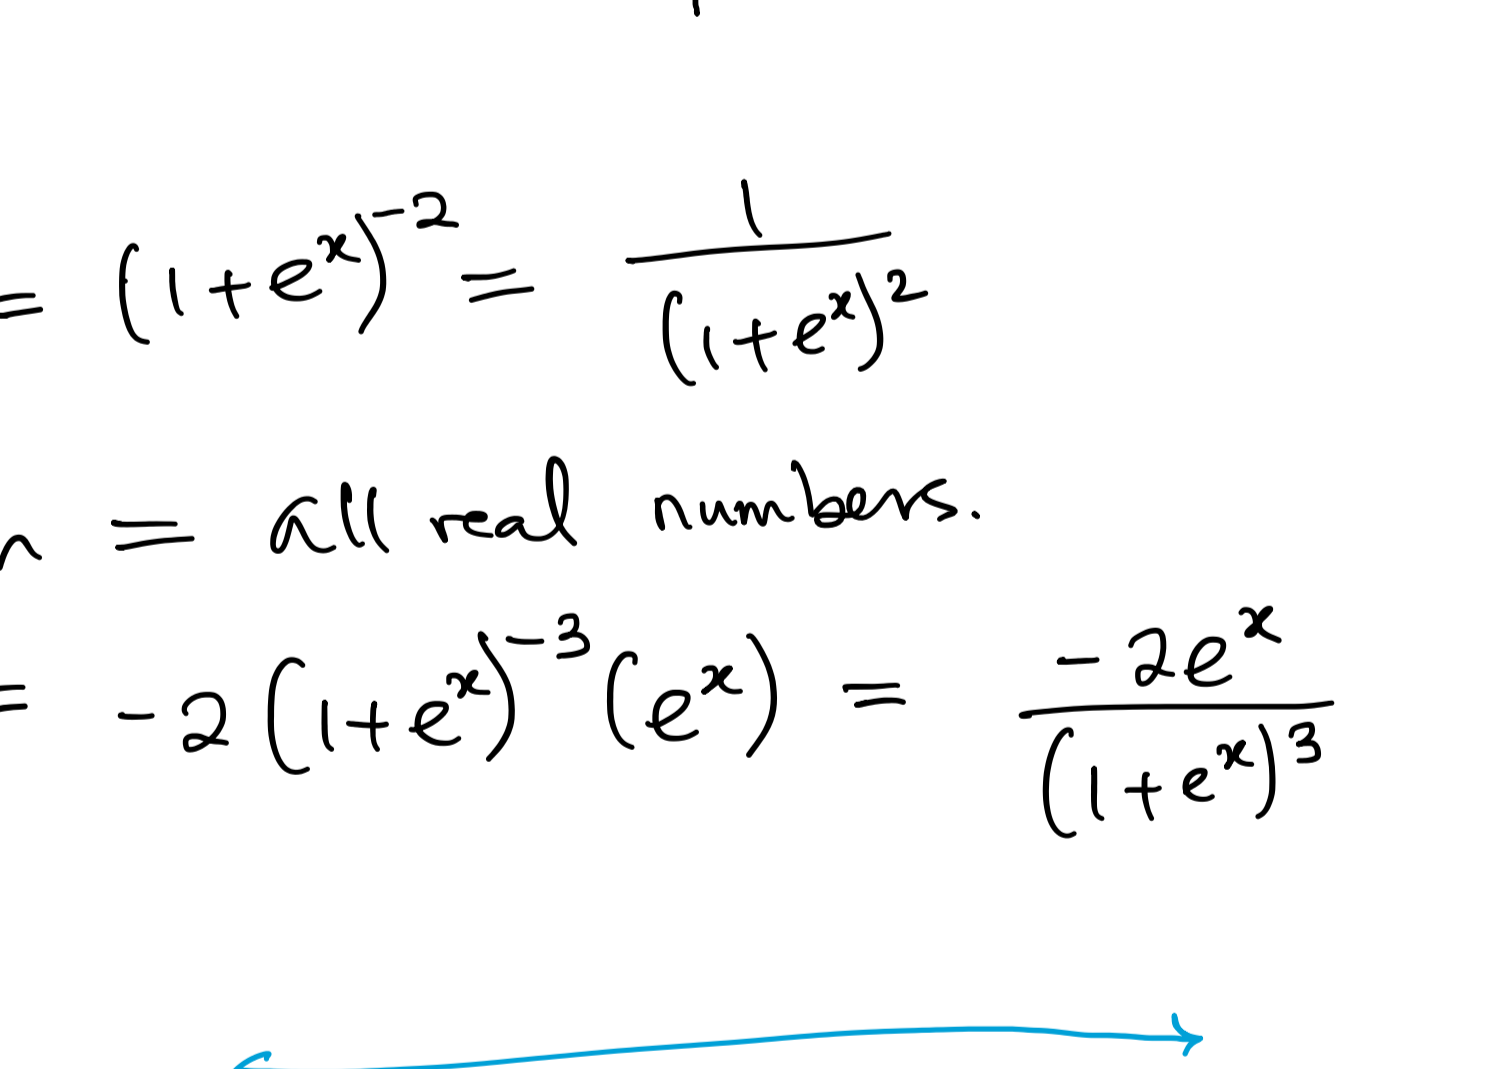 = (1+eˣ)⁻² = 1/(1+eˣ)²
n = all real numbers.
= -2(1+eˣ)⁻³(eˣ) = -2eˣ/(1+eˣ)³